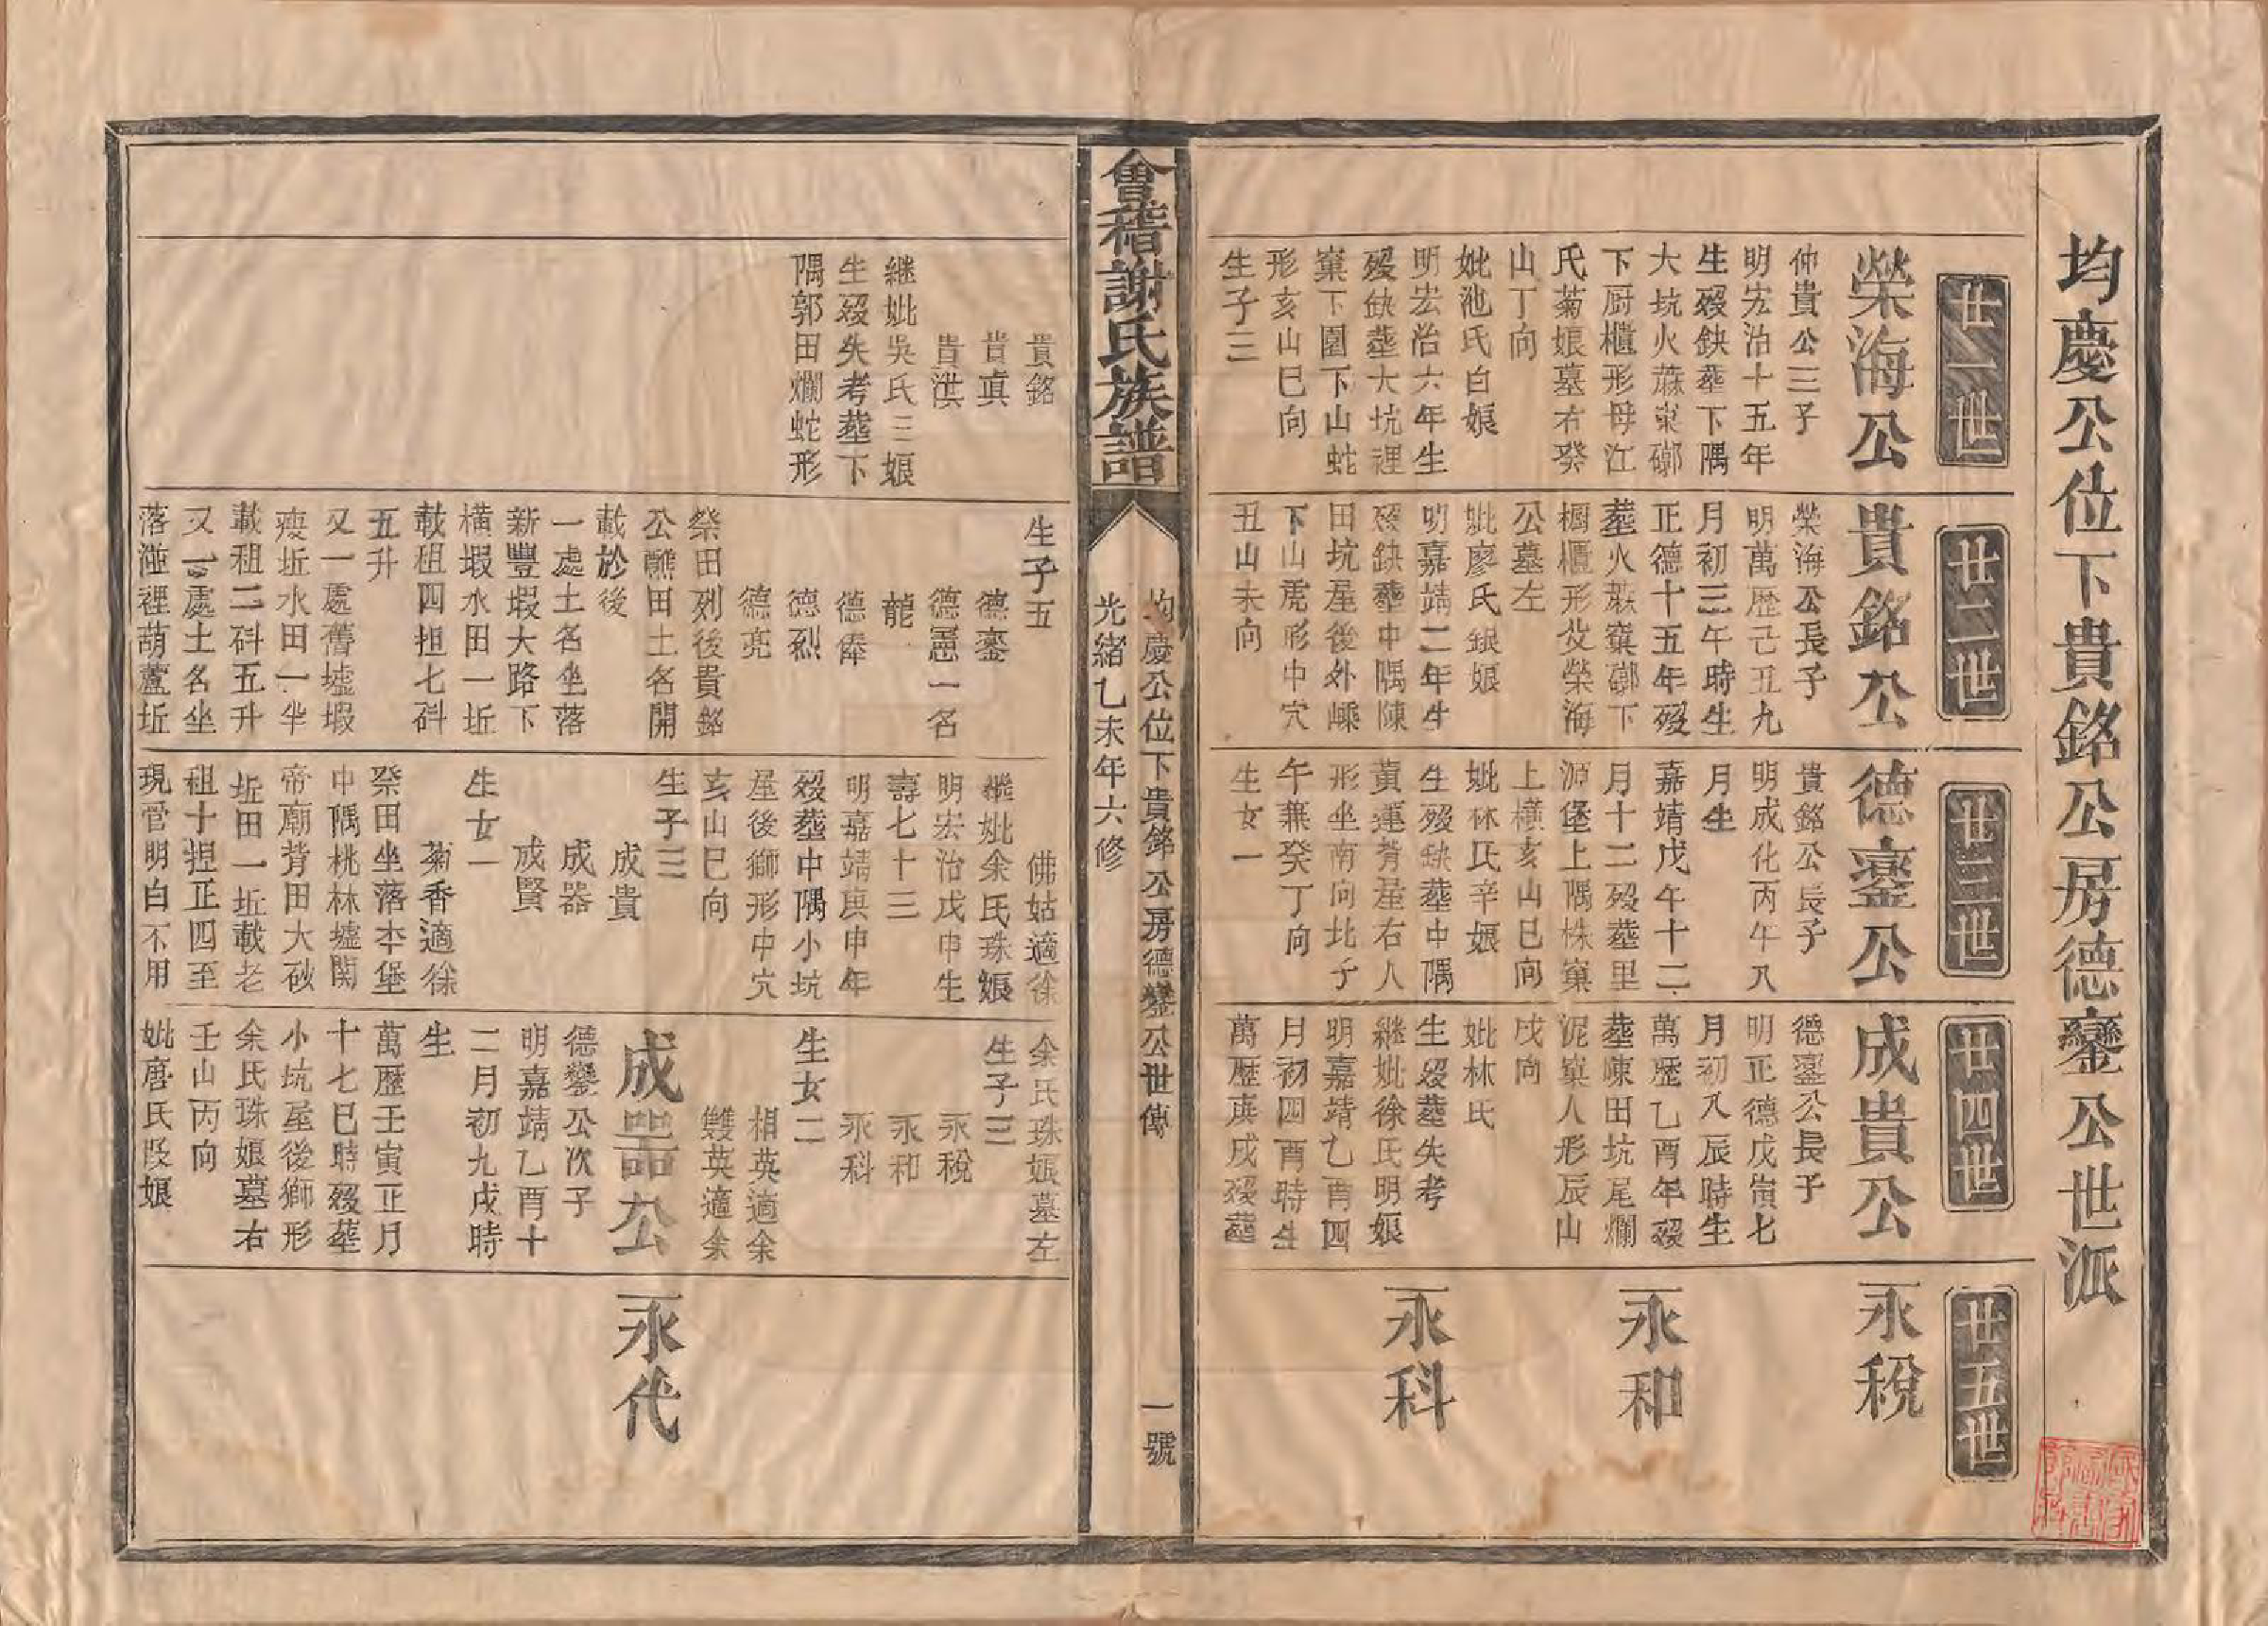 均慶公位下貴銘公房德鑾公世派
廿一世
榮海公
仲貴公三子
明宏治十五年
生歿缺葬下隅
大坑火蔴窠磜
下厨櫃形母江
氏菊娘墓右癸
山丁向
妣池氏白娘
明宏治六年生
歿缺葬大坑裡
窠下圍下山蛇
形亥山巳向
生子三
廿二世
貴銘公
榮海公長子
明萬歷己丑九
月初三午時生
正德十五年歿
葬火蔴窠磜下
櫥櫃形父榮海
公墓左
妣廖氏銀娘
明嘉靖二年生
歿缺葬中隅陳
田坑屋後外嵊
下山虎形中穴
丑山未向
廿三世
德鑾公
貴銘公長子
明成化丙午八
月生
嘉靖戊午十二
月十二歿葬里
源堡上隅株窠
上橫亥山巳向
妣林氏辛娘
生歿缺葬中隅
黃蓮背屋右人
形坐南向北子
午兼癸丁向
生女一
廿四世
成貴公
德鑾公長子
明正德戊寅七
月初八辰時生
萬歷乙酉年歿
葬陳田坑尾爛
泥窠人形辰山
戌向
妣林氏
生歿葬失考
継妣徐氏明娘
明嘉靖乙酉四
月初四酉時生
萬歷庚戌歿葬
廿五世
永稅
永和
永科
會稽謝氏族譜
均慶公位下貴銘公房德鑾公世傳
一號
光緒乙未年六修
貴銘
貴真
貴洪
継妣吳氏三娘
生歿失考葬下
隅郭田爛蛇形
生子五
德鑾
德憲一名
龍
德俸
德烈
德亮
祭田列後貴銘
公醮田土名開
載於後
一處土名坐落
新豐塅大路下
橫塅水田一坵
載租四担七斗
五升
又一處舊墟塅
瘦坵水田一半
載租二斗五升
又一處土名坐
落湴裡葫蘆坵
佛姑適徐
継妣余氏珠娘
明宏治戊申生
壽七十三
明嘉靖庚申年
歿葬中隅小坑
屋後獅形中穴
亥山巳向
生子三
成貴
成器
成賢
生女一
菊香適徐
祭田坐落本堡
中隅桃林墟関
帝廟背田大砂
坵田一坵載老
租十担正四至
現管明白不用
余氏珠娘墓左
生子三
永稅
永和
永科
生女二
相英適余
雙英適余
成器公
德鑾公次子
明嘉靖乙酉十
二月初九戌時
生
萬歷壬寅正月
十七巳時歿葬
小坑屋後獅形
余氏珠娘墓右
壬山丙向
妣唐氏段娘
永代